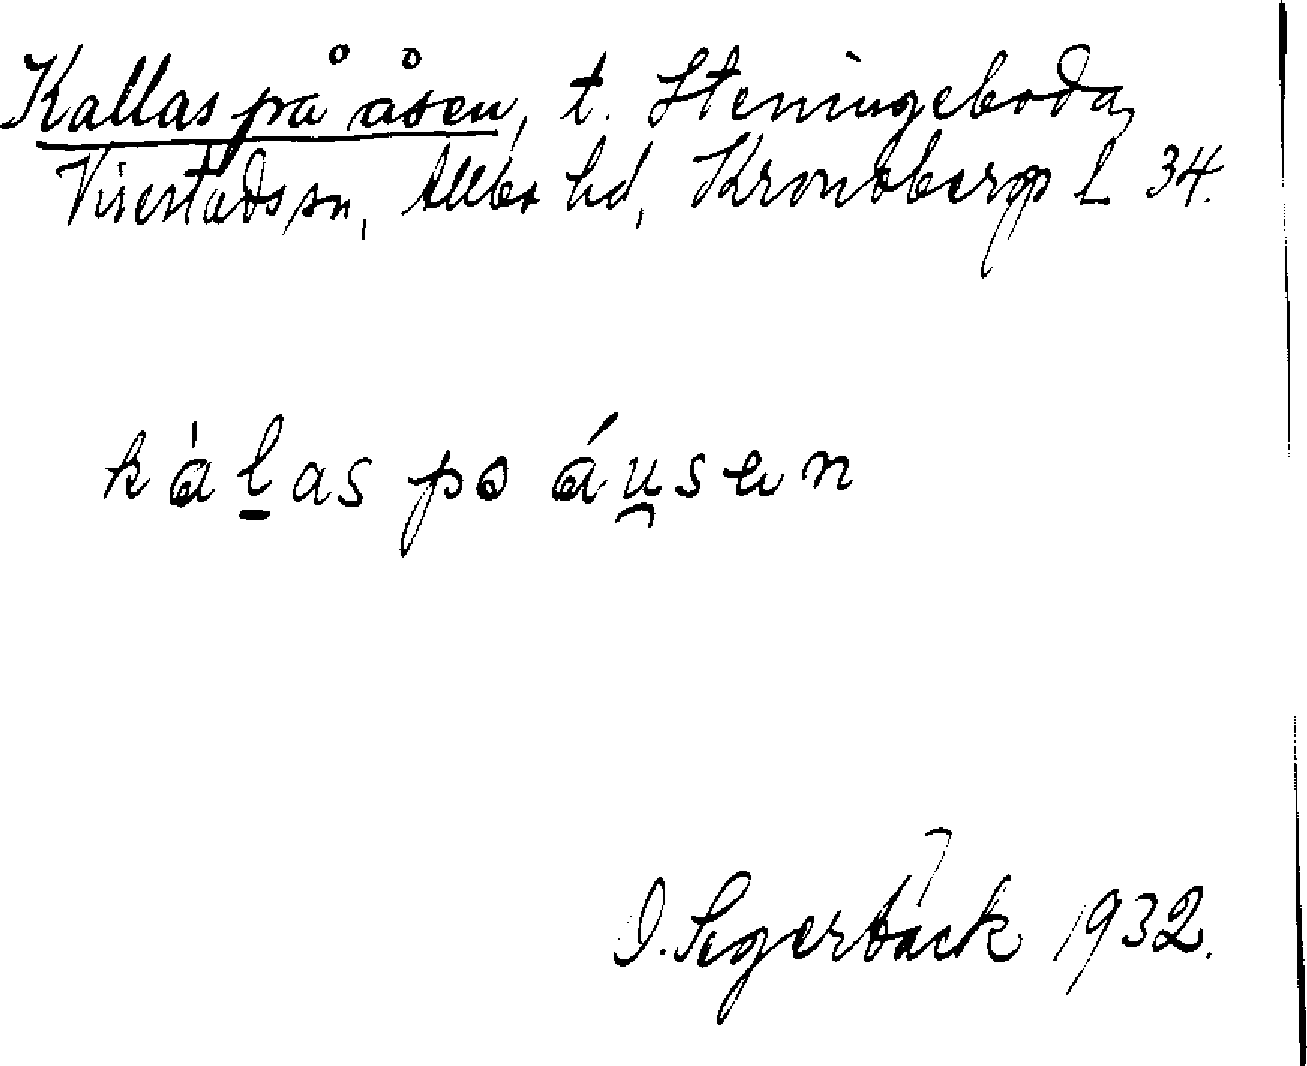 Kallas på åsen, t. Steningeboda,
Virestads sn, Allbo hd, Kronobergs L 34.
kàlas po áu̯sen
D. Segerbäck 1932.